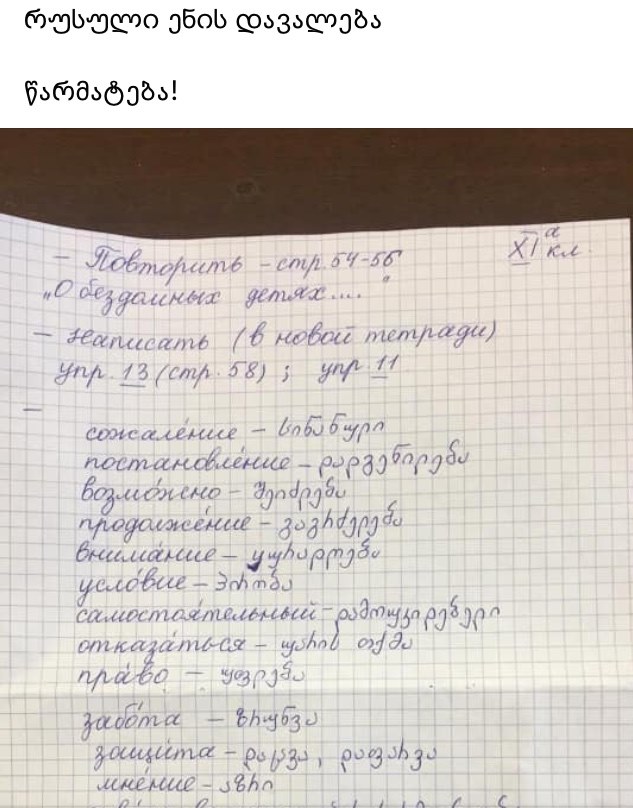 რუსული ენის დავალება
წარმატება!
XI а кл.
– Повторить – стр. 54-56
„О бездомных детях...."
– Написать (в новой тетради)
упр. 13 (стр. 58) ; упр 11
–
сожале́ние – სინანული
постановле́ние – დადგენილება
возмо́жно – შეიძლება
продолже́ние – გაგრძელება
внима́ние – ყურადღება
усло́вие – პირობა
самостоя́тельный – დამოუკიდებელი
отказа́ться – უარის თქმა
пра́во – უფლება
забо́та – ზრუნვა
защи́та – დაცვა, დაფარვა
мне́ние – აზრი